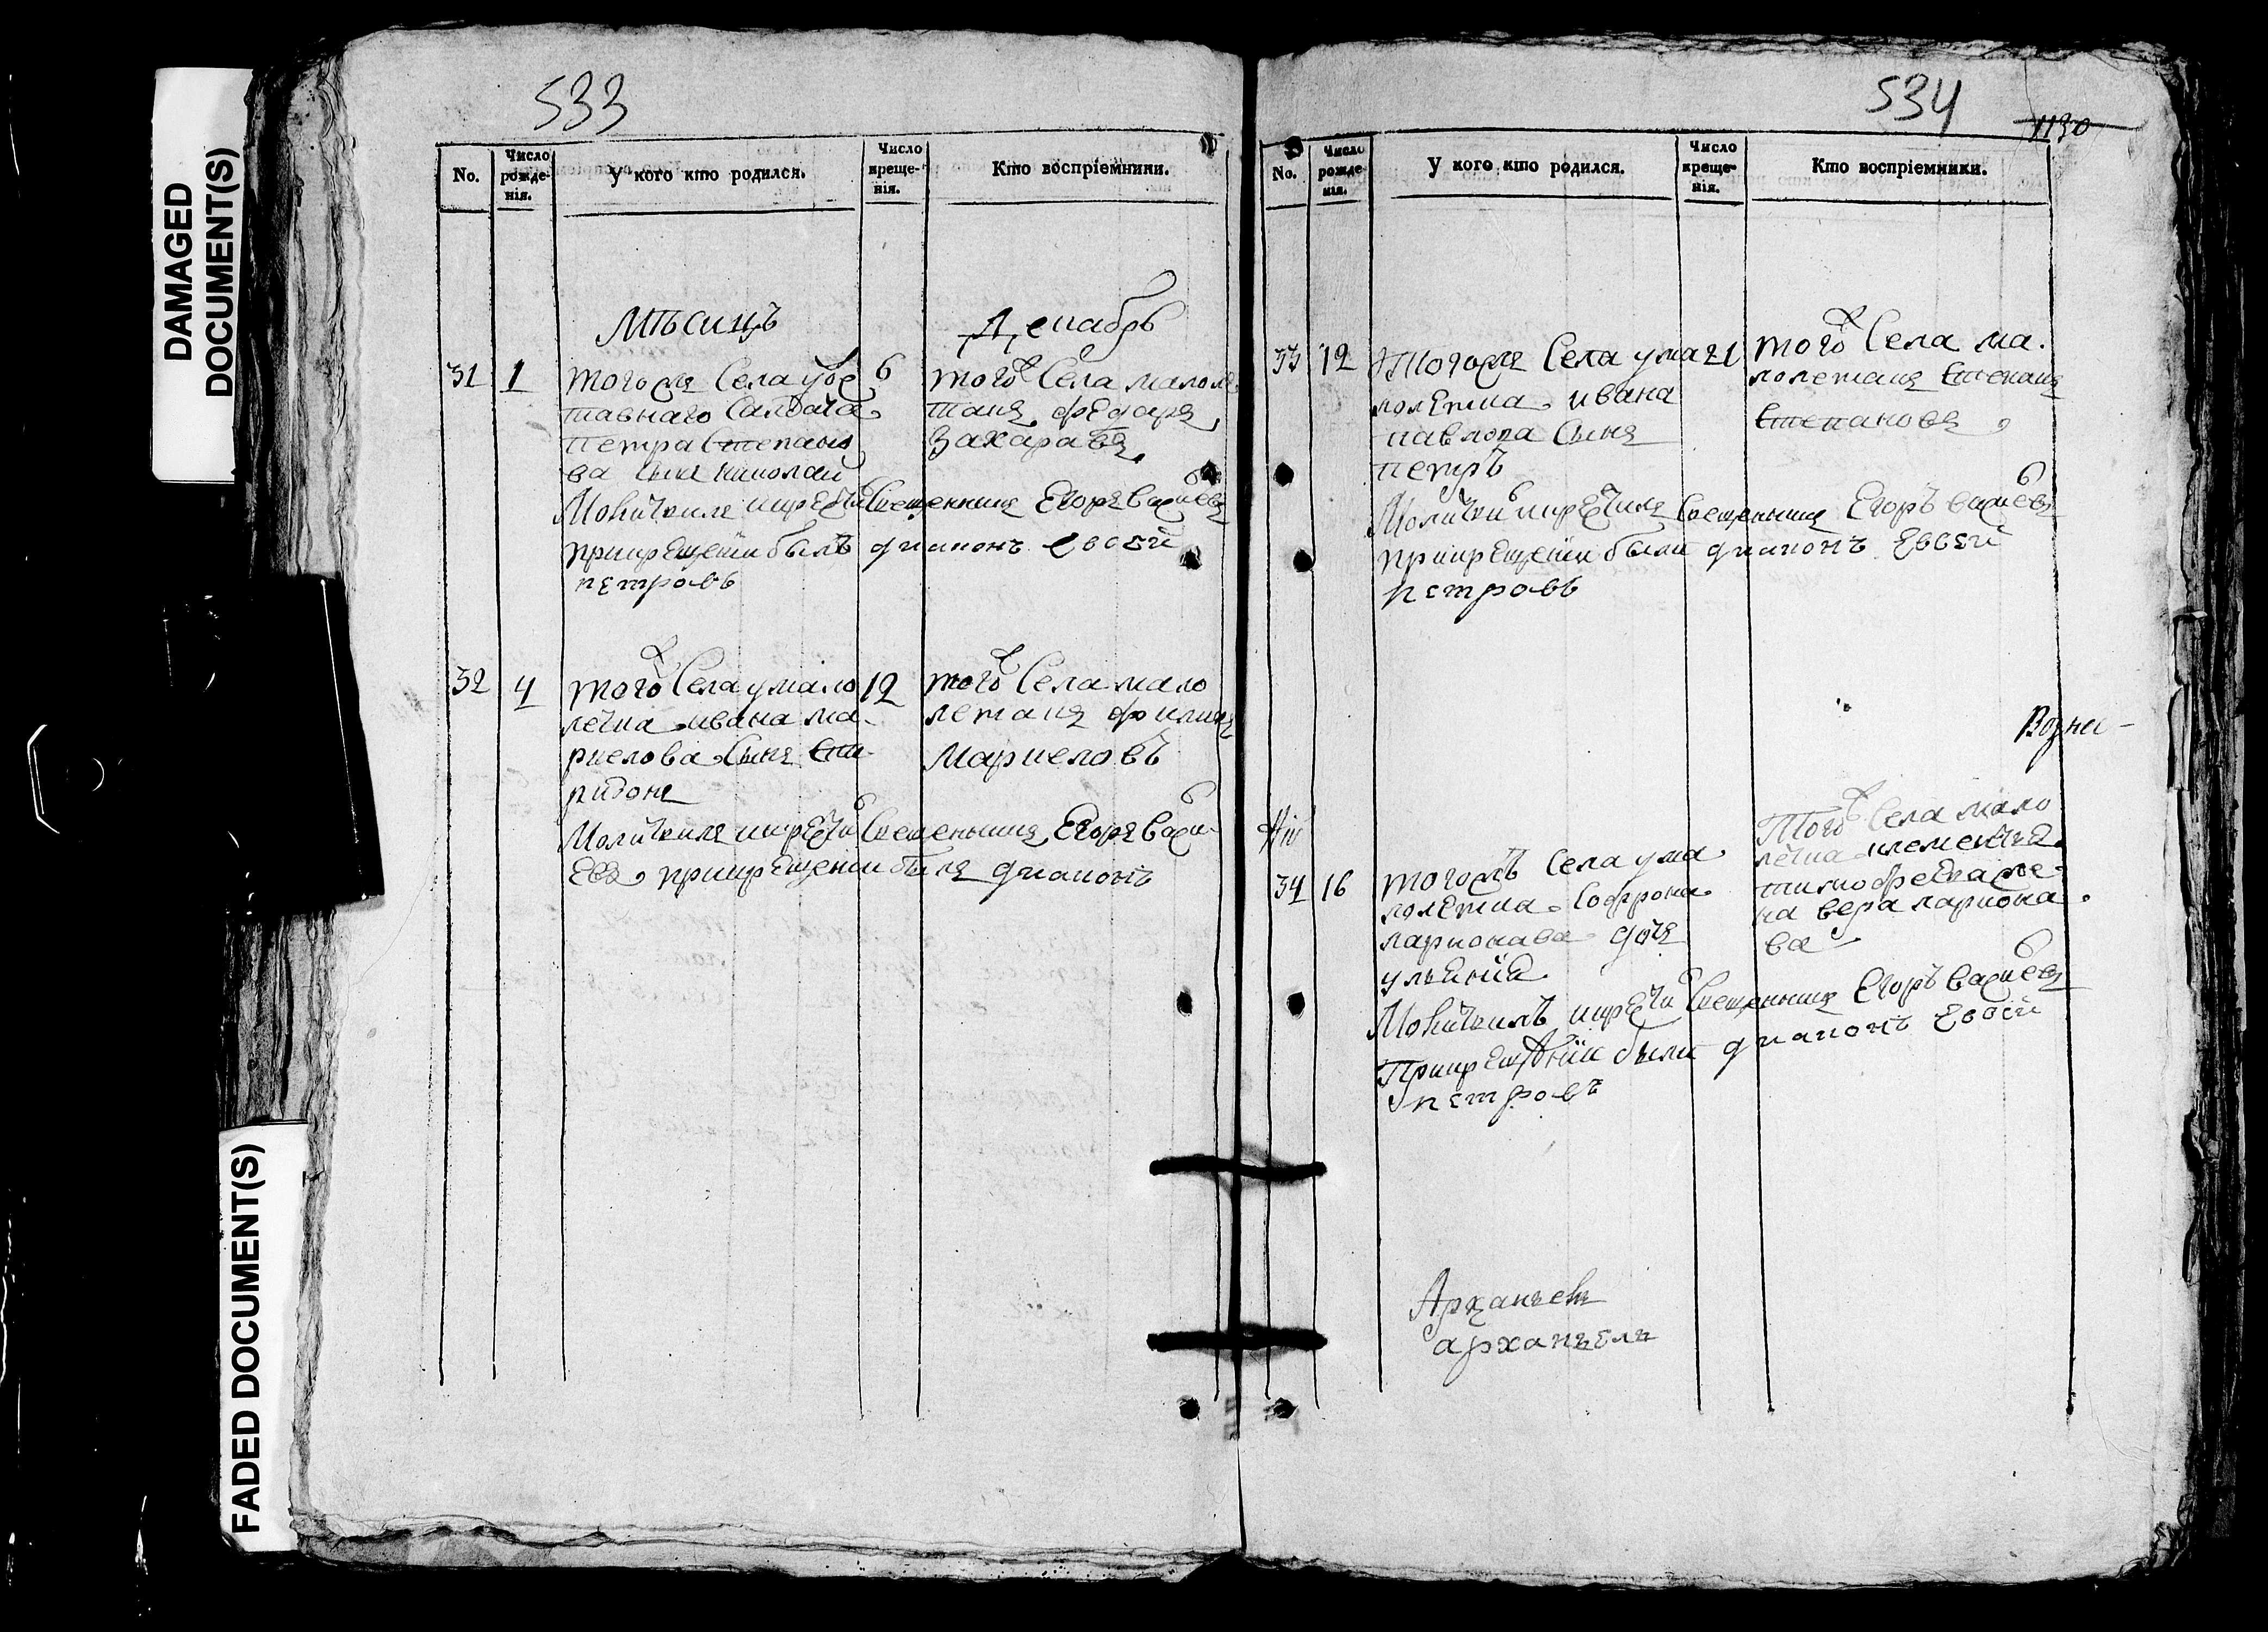 DAMAGED
DOCUMENT(S)
FADED DOCUMENT(S)
533
No.
Число рожде-нія.
У кого кто родился.
Число креще-нія.
Кто воспріемники.
Мѣсицъ Декабрь
31 1 6
Тогожя Села уѡе
тавнаго Салдата
петра Степано
ва сына николаи
того ж Села малолѣ
таця федаря
Захаравя
Молитвиля икрѣстил Свещенникя Егоря Василев
прикрещеніи былъ дияконъ Евсей
петровъ
32 4 12
того ж Села умало
летка ивана ма-
ркелова сыня Спи-
ридоня
того ж Села мало
летаця филипя
Маркеловъ
Молитвиля икрѣстил Свещеникя Егоря Васи-
ева прикрещении быля дияконъ
534
1130
No.
Число рожде-нія.
У кого кто родился.
Число креще-нія.
Кто воспріемники.
33 12 21
Тогожя Села ума
лолетка ивана
павлова Сыня
петръ
того ж Села ма-
лолетаця Степаня
Степановя
Молитвилъ икрѣстиля Свещеникя Егоръ Василев
прикрещеніи были дияконъ Евсей
петровъ
Возне-
34 16
тогожъ Села ума
лолетка Софрона
ларионава дочя
ульянія
Того ж Села мало
летка
на вера лариона
ва
Молитвилъ икрѣсти Свещеникя Егоръ Василев
Прикрещеніи были дияконъ Евсей
петровъ
Арханьелъ
архангелъ